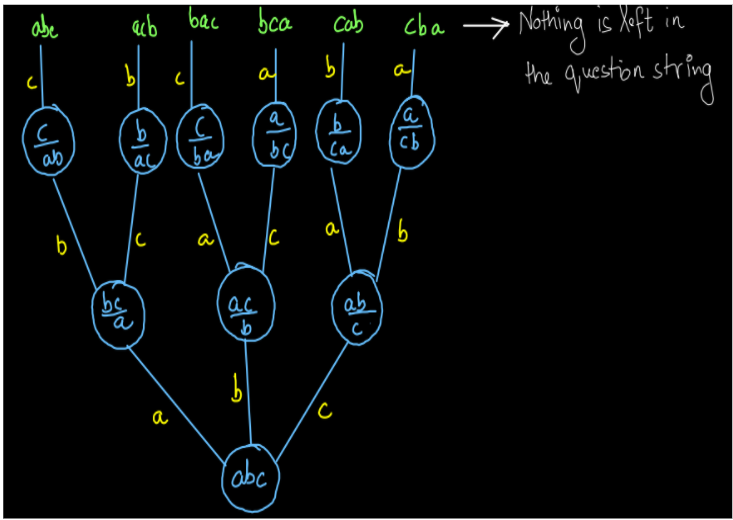 abc acb bac bca cab cba → Nothing is left in
the question string
c b c a b a
c/ab b/ac c/ba a/bc b/ca a/cb
b c a c a b
bc/a ac/b ab/c
a b c
abc